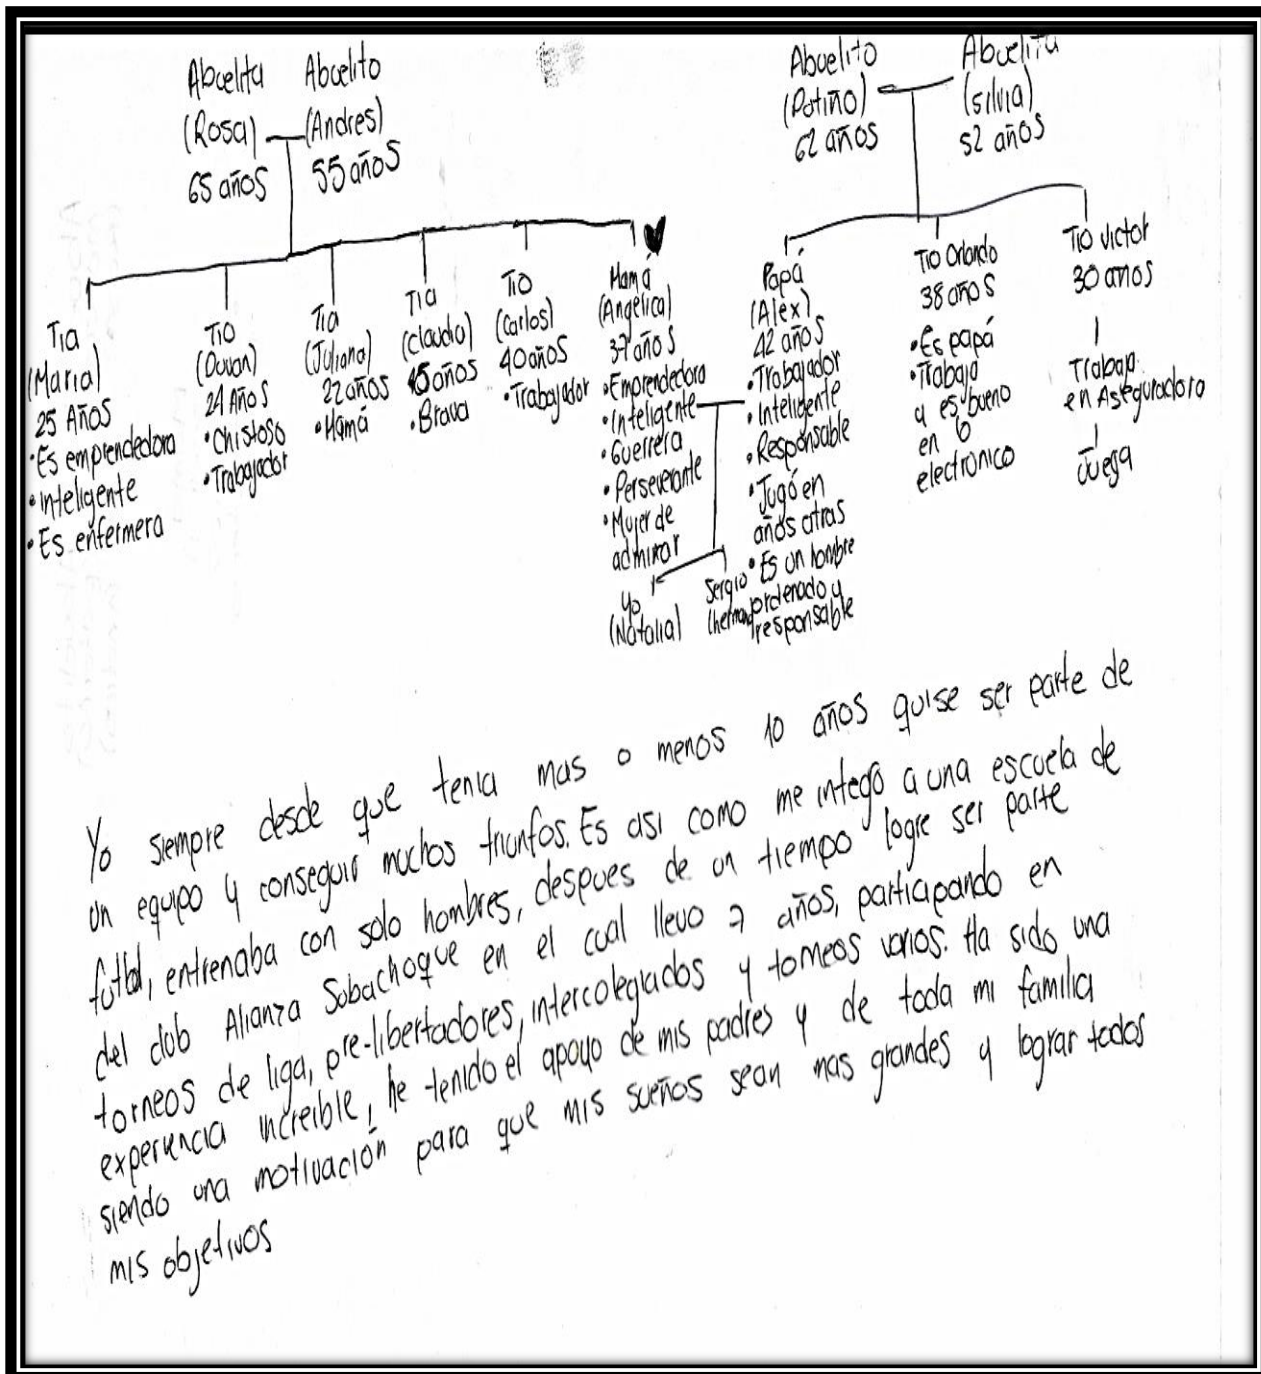 Abuelita
(Rosa)
65 años
Abuelito
(Andres)
55 años
Abuelito
(Patiño)
62 años
Abuelita
(silvia)
52 años
Tia
(Maria)
25 Años
•Es emprendedora
•inteligente
•Es enfermera
Tio
(Duvan)
24 Años
•Chistoso
•Trabajador
Tia
(Juliana)
22 años
•Mamá
Tia
(claudia)
45 años
•Brava
Tio
(Carlos)
40 años
•Trabajador
Mamá
(Angelica)
37 años
•Emprendedora
•Inteligente
•Guerrera
•Perseverante
•Mujer de
admirar
Papá
(Alex)
42 años
•Trabajador
•Inteligente
•Responsable
•Jugó en
años atras
•Es un hombre
ordenado y
responsable
Tio Orlando
38 años
•Es papá
•Trabaja
y es bueno
en lo
electronico
Tio Victor
30 años
Trabaja
en Aseguradora
Juega
Yo
(Natalia)
Sergio
Yo siempre desde que tenia mas o menos 10 años quise ser parte de
un equipo y conseguir muchos triunfos. Es asi como me integó a una escuela de
futbol, entrenaba con solo hombres, despues de un tiempo logre ser parte
del club Alianza Subachoque en el cual llevo 7 años, participando en
torneos de liga, pre-libertadores, intercolegiados y torneos varios. Ha sido una
experiencia increible, he tenido el apoyo de mis padres y de toda mi familia
siendo una motivación para que mis sueños sean mas grandes y lograr todos
mis objetivos